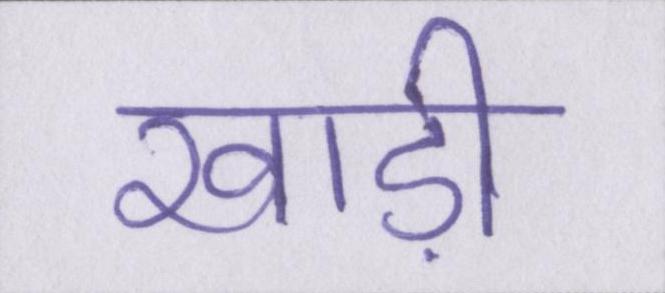 खाड़ी